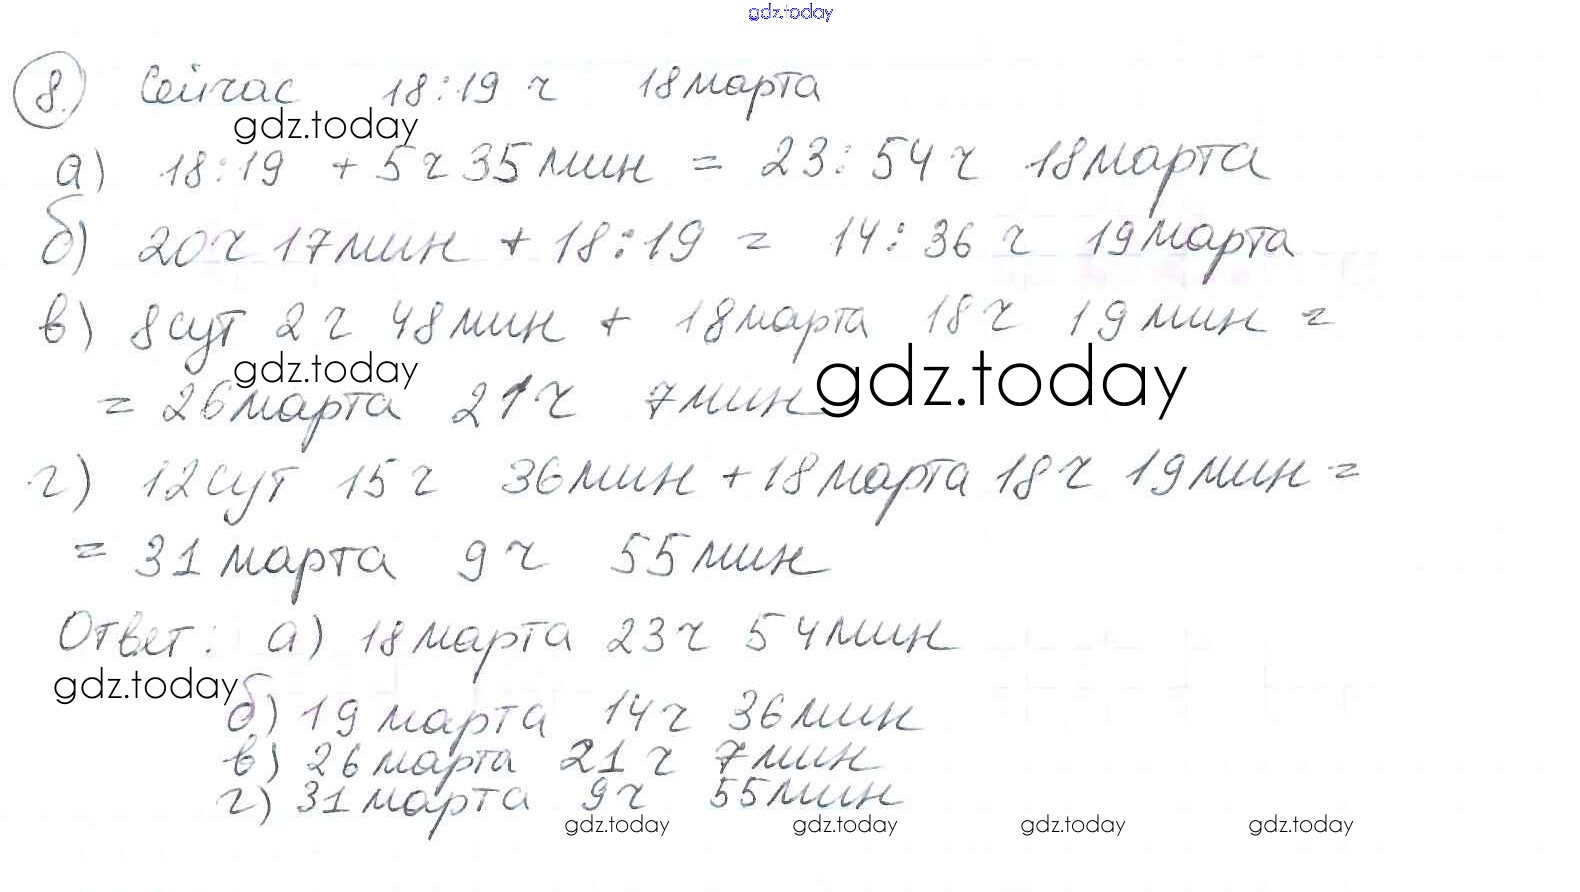 gdz.today
8. Сейчас 18:19 ч 18 марта
gdz.today
а) 18:19 + 5 ч 35 мин = 23:54 ч 18 марта
б) 20 ч 17 мин + 18:19 = 14:36 ч 19 марта
в) 8 сут 2 ч 48 мин + 18 марта 18 ч 19 мин =
gdz.today
gdz.today
= 26 марта 21 ч 7 мин
г) 12 сут 15 ч 36 мин + 18 марта 18 ч 19 мин =
= 31 марта 9 ч 55 мин
Ответ: а) 18 марта 23 ч 54 мин
gdz.today
б) 19 марта 14 ч 36 мин
в) 26 марта 21 ч 7 мин
г) 31 марта 9 ч 55 мин
gdz.today gdz.today gdz.today gdz.today